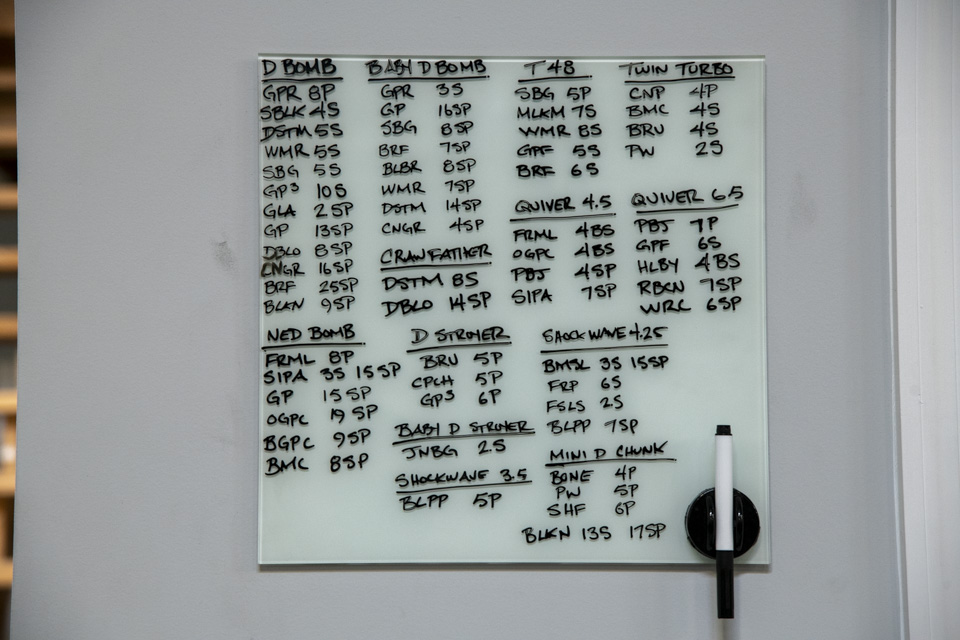 D BOMB
GPR 8P
SBLK 4S
DSTM 5S
WMR 5S
SBG 5S
GP³ 10S
GLA 25P
GP 13SP
DBLO 8SP
CNGR 16SP
BRF 25SP
BLKN 9SP
BABY D BOMB
GPR 3S
GP 16SP
SBG 8SP
BRF 7SP
BLBR 8SP
WMR 7SP
DSTM 14SP
CNGR 4SP
CRAWFATHER
DSTM 8S
DBLO 14SP
T 48
SBG 5P
MLKM 7S
WMR 8S
GPF 5S
BRF 6S
TWIN TURBO
CNP 4P
BMC 4S
BRU 4S
PW 2S
QUIVER 4.5
FRML 4BS
OGPC 4BS
PBJ 4SP
SIPA 7SP
QUIVER 6.5
PBJ 7P
GPF 6S
HLBY 4BS
RBCN 7SP
WRC 6SP
NED BOMB
FRML 8P
SIPA 3S 15SP
GP 15SP
OGPC 19SP
BGPC 9SP
BMC 8SP
D STROYER
BRU 5P
CPCH 5P
GP³ 6P
BABY D STROYER
JNBG 2S
SHOCKWAVE 3.5
BLPP 5P
SHOCKWAVE 4.25
BMSL 3S 15SP
FRP 6S
FSLS 2S
BLPP 7SP
MINI D CHUNK
BONE 4P
PW 5P
SHF 6P
BLKN 13S 17SP